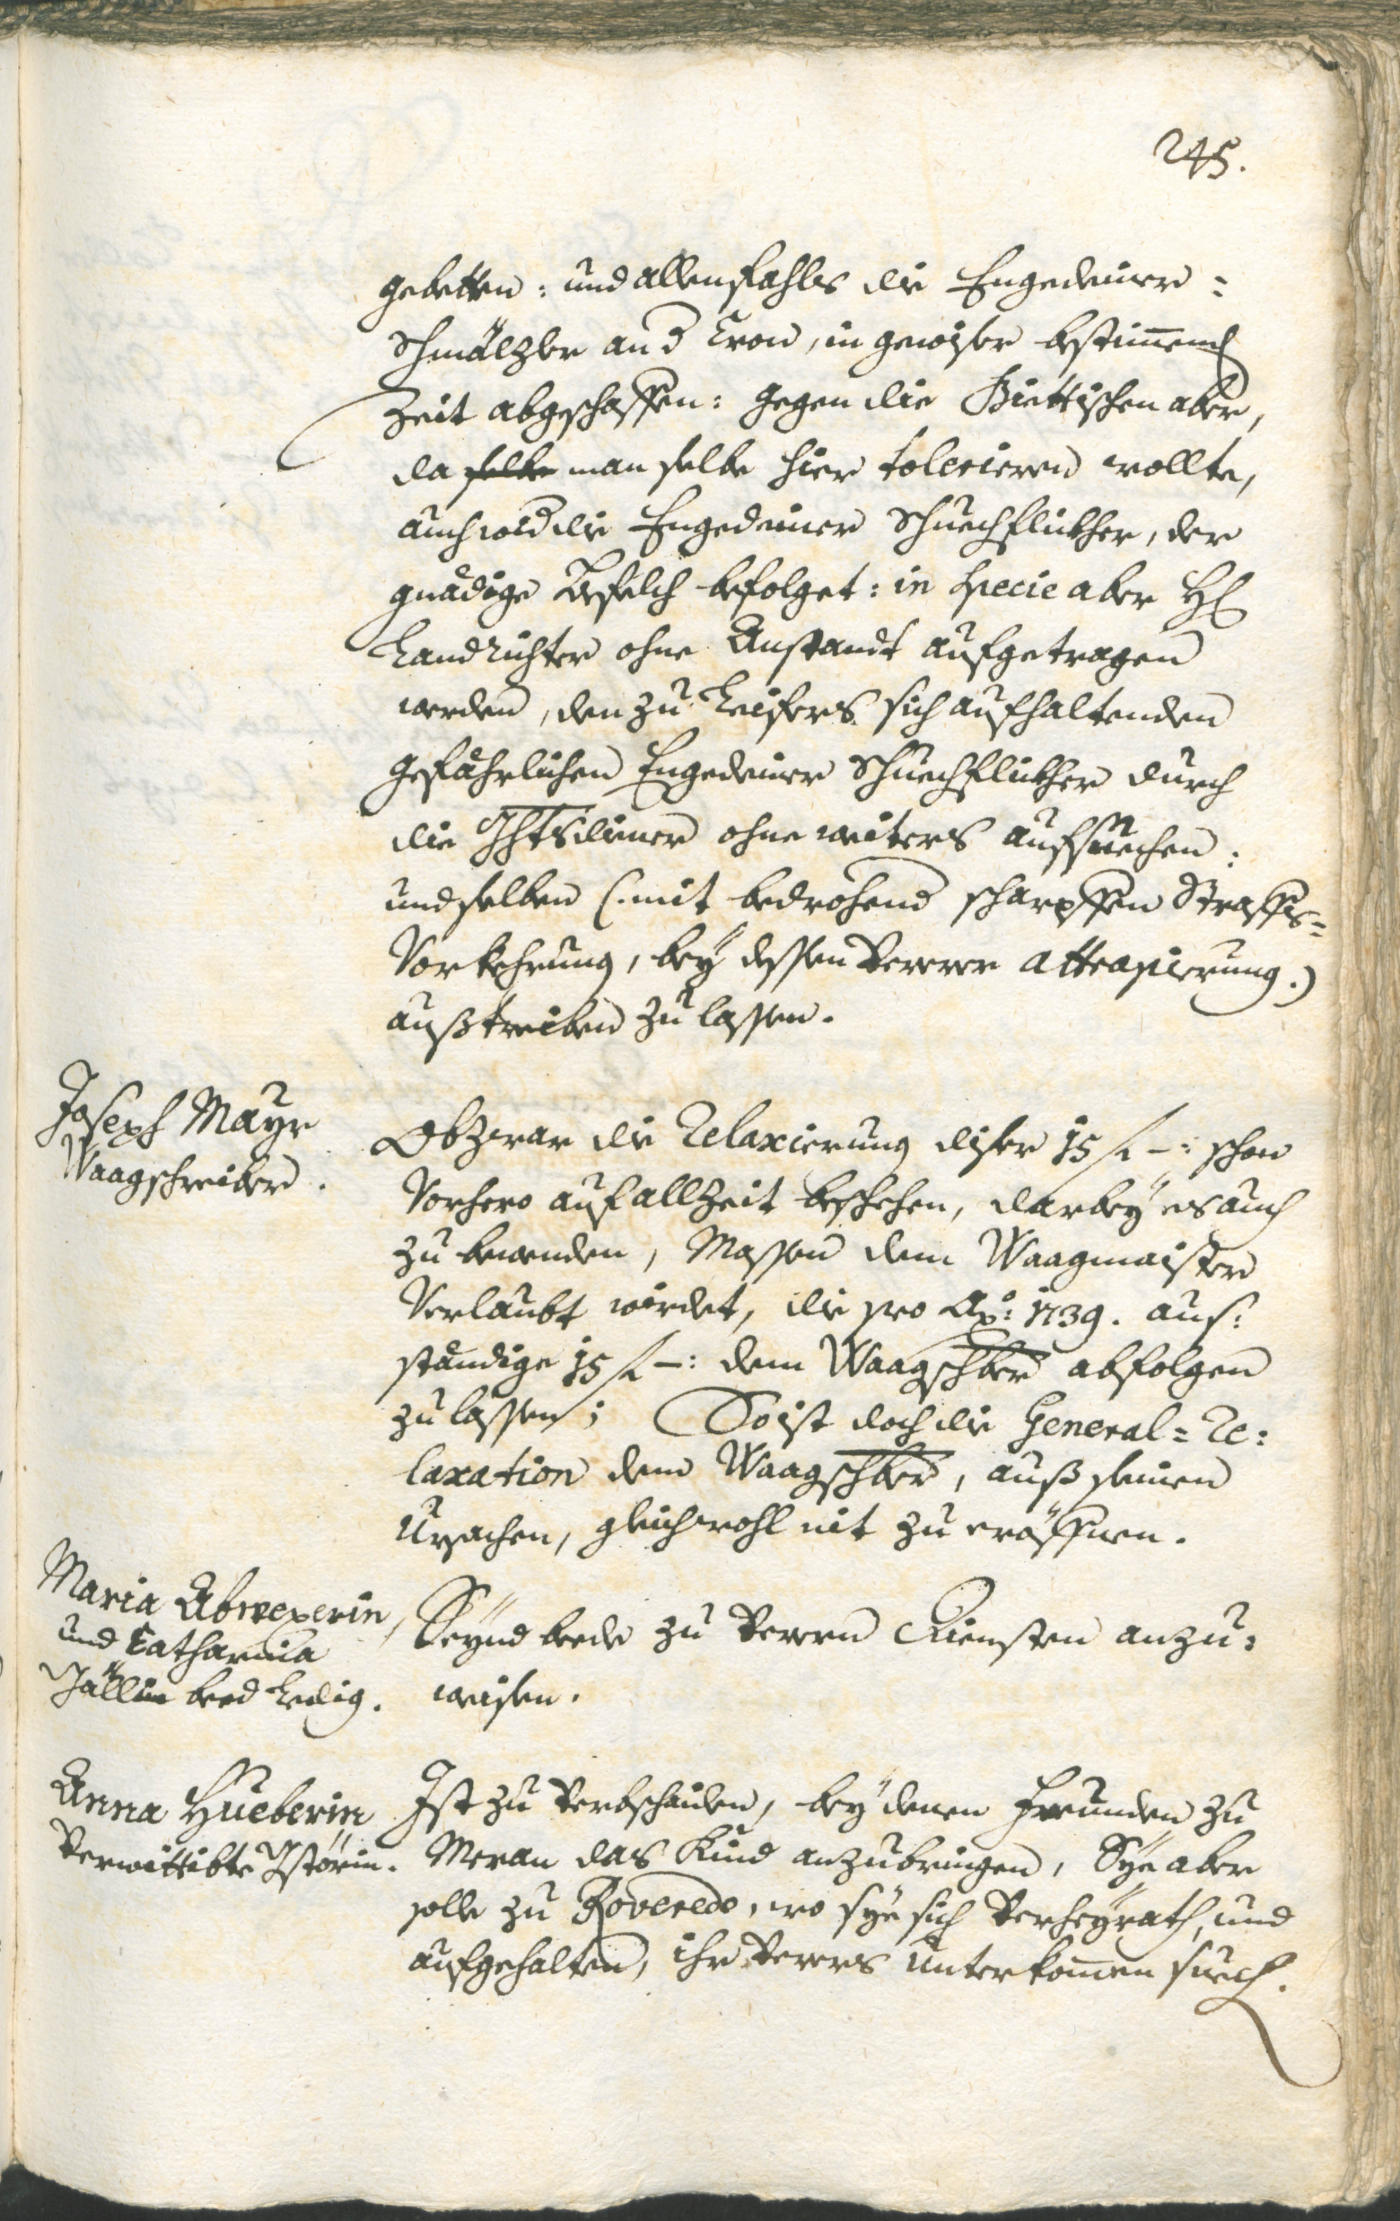 245.
gebetten: und allenfahls die Engedeiner=
Schmälzler auß Tron, in gewiser bestimmend
Zeit abgeschaffen: gegen die Biettischen aber,
da selbe man selbe hier tolerieren wollte,
auch wid die Engedeiner Schuechflickher, der
gnädige Befelch befolget: in specie aber H
Landrichter ohne Anstandt aufgetragen
werden, den zu Leifers sich aufhaltenden
gefährlichen Engedeiner Schuechflickher durch
die Ghtsdiener ohne weiters aufsuechen:
und selben (mit bedrohend scharpffen Straffs=
Vorkehrung, bey dessen Attrapierung.)
außtreiben zu lassen.
Joseph Mayr
Waagschreiber.
Obzwar die Relaxierung diser 15 f –: schon
Vorhero auf allzeit beschehen, darbey es auch
zu bewenden, Massen dem Waagmaister
Verlaubt wirdet, die pro Ao: 1739. auß=
ständige 15 f –: dem Waagschber abfolgen
zu lassen; So ist doch die General=Re=
laxation dem Waagschber, auß seinen
Ursachen, gleichwohl nit zu eröffnen.
Maria Abwexerin,
und Catharina
Jällin beed ledig.
Seynd beede zu Diensten anzu=
weisen.
Anna Hueberin
Verwittibte Istörin.
Ist zu Verbschaiden, bey denen Freunden zu
Meran das Kind anzubringen, Sye aber
solle zu Roveredo, wo sye sich Verheyrath, und
aufgehalten, ihr Unterkommen suech.